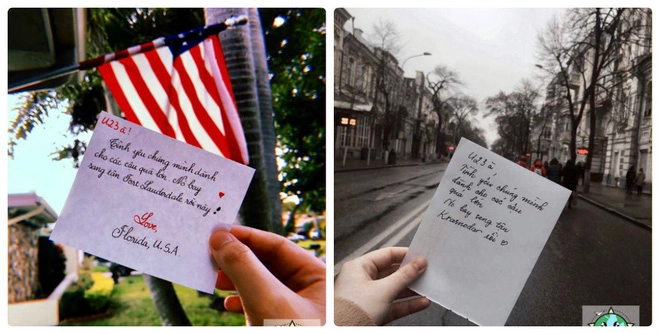 U23 à!
Tình yêu chúng mình dành
cho các cậu quá lớn. Nó bay
sang tận Fort Lauderdale rồi này!
Love,
Florida, U.S.A.
U23 à,
Tình yêu chúng mình
dành cho các cậu
quá lớn
Nó bay sang tận
Krasnodar rồi